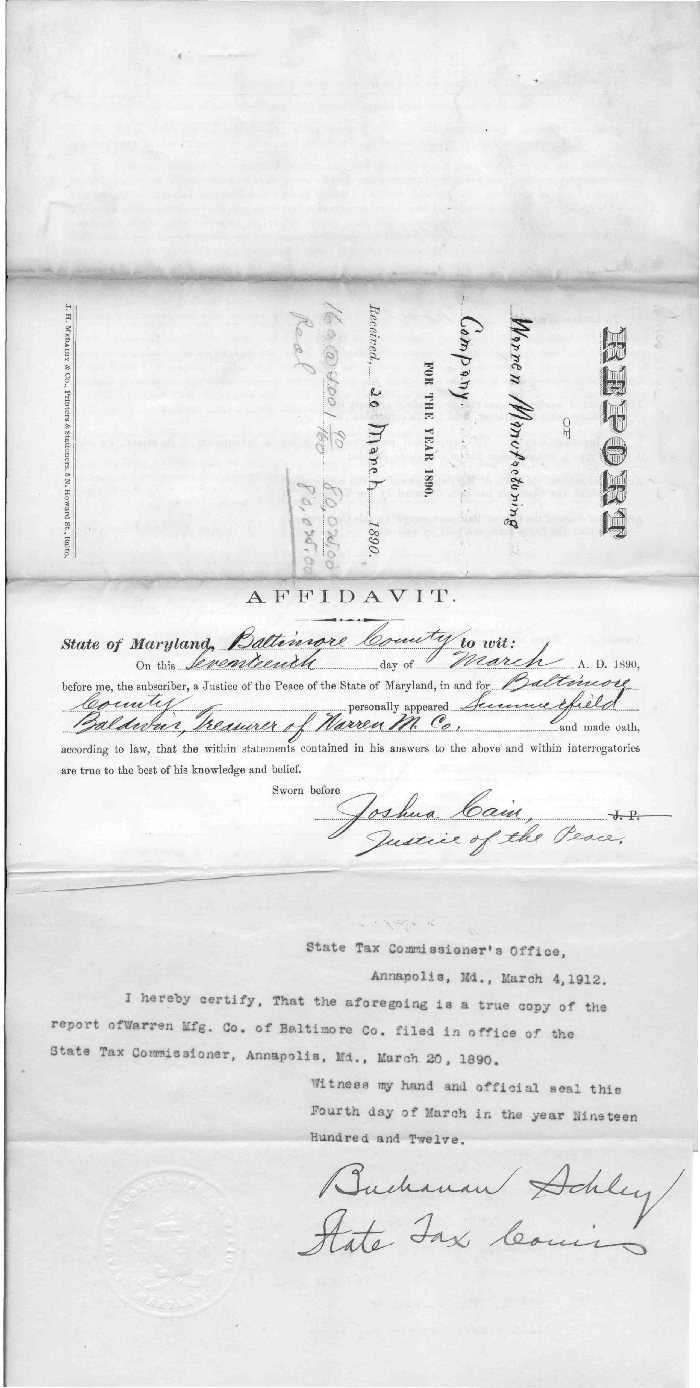 REPORT
OF
Warren Manufacturing
Company
FOR THE YEAR 1890.
Received, 20 March 1890.
Real
J. H. MEDAIRY & CO., Printers & Stationers, 6 N. Howard St., Balto.
AFFIDAVIT.
State of Maryland, Baltimore County to wit:
On this Seventeenth day of March A. D. 1890,
before me, the subscriber, a Justice of the Peace of the State of Maryland, in and for Baltimore
County personally appeared Summerfield
Baldwin, Treasurer of Warren M. Co. and made oath,
according to law, that the within statements contained in his answers to the above and within interrogatories
are true to the best of his knowledge and belief.
Sworn before
Joshua Cain, J. P.
Justice of the Peace.
State Tax Commissioner's Office,
Annapolis, Md., March 4,1912.
I hereby certify, That the aforegoing is a true copy of the
report ofWarren Mfg. Co. of Baltimore Co. filed in office of the
State Tax Commissioner, Annapolis, Md., March 20, 1890.
Witness my hand and official seal this
Fourth day of March in the year Nineteen
Hundred and Twelve.
Buchanan Schley
State Tax Comis